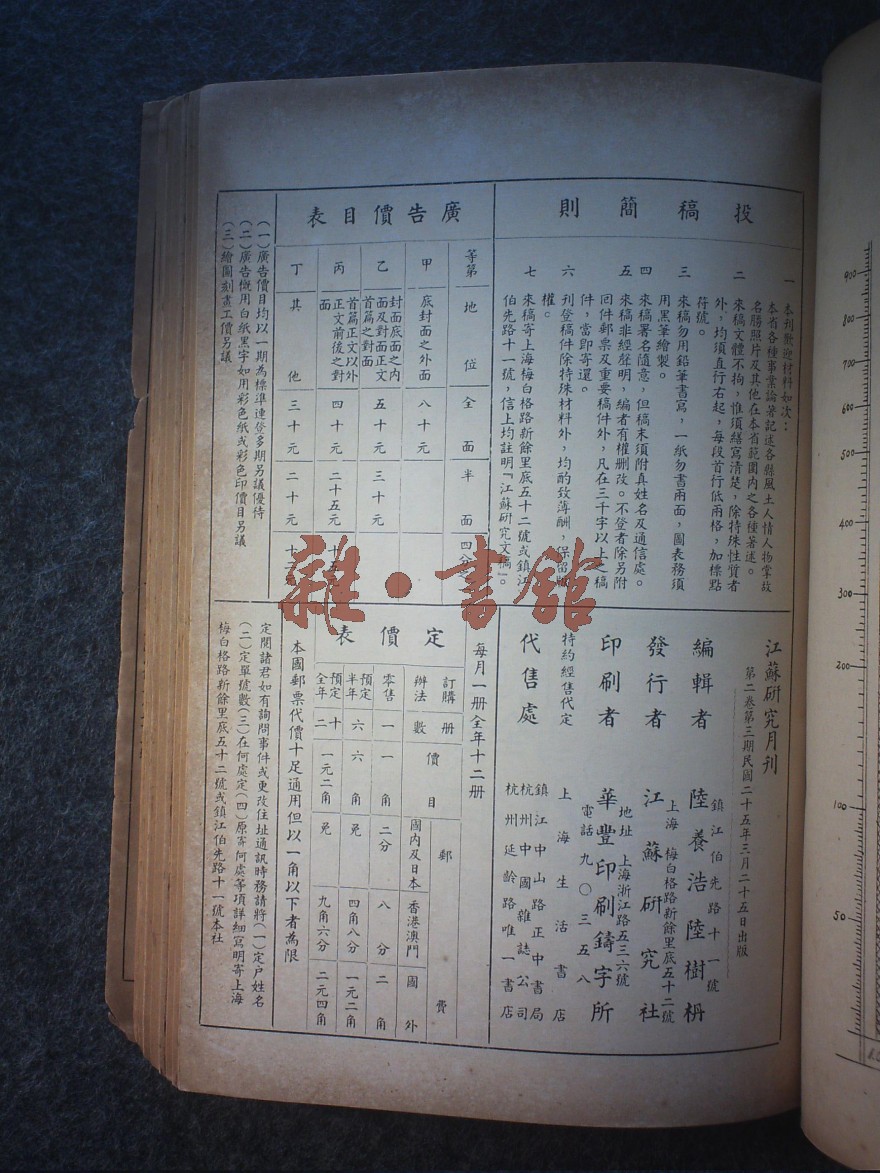 投稿簡則
一 本刊歡迎材料如次：
本省各種事業論著記述各縣風土人情人物掌故
名勝照片及其他在本省範圍內之各種著述。
二 來稿文體不拘，惟須繕寫清楚，除特殊性質者
外，均須直行右起，每段首行低兩格，加標點
符號。
三 來稿勿用鉛筆書寫，一紙勿書兩面，圖表務須
用黑筆繪製。
四 來稿署名隨意，但稿末須附真姓名及通信處。
五 來稿非經聲明，編者有權刪改。不登者除另附
回件郵票及重要稿件外，凡在三千字以上之稿
件，當即寄還。
六 刊登稿件除特殊材料外，均酌致薄酬，保留版
權。
七 來稿寄上海梅白格路新餘里底五十二號或鎮江
伯先路十一號，信上均註明「江蘇研究文稿」。
廣告價目表
等第 地位 全面 半面 四分
甲 底封面之外面 八十元
乙 封面底面之內面及對面正文首篇之對面 五十元 三十元
丙 首篇正文以外正文前後之對面 四十元 二十五元 十五元
丁 其他 三十元 二十元 十
（一）廣告價目均以一期為標準連登多期另議優待
（二）廣告概用白紙黑字如用彩色紙或彩色印價目另議
（三）繪圖刻畫工價另議
江蘇研究月刊
第二卷第三期民國二十五年三月二十五日出版
編輯者 陸養浩 陸樹枬
鎮江伯先路十一號
發行者 江蘇研究社
上海梅白格路新餘里底五十二號
印刷者 華豐印刷鑄字所
地址 上海浙江路五三六號
電話九〇三五八
特約經售代定 上海生活書店
代售處
鎮江中山路正中書局
杭州中國雜誌公司
杭州延齡路唯一書店
每月一冊全年十二冊
定價表
訂購辦法 冊數 價目 郵費
國內及日本 香港澳門 國外
零售 一 一角 二分 八分 二角
預定半年 六 六角 免 四角八分 一元二角
預定全年 十二 一元二角 免 九角六分 二元四角
本國郵票代價十足通用但以一角以下者為限
定閱諸君如有詢問事件或更改住址通訊時務請將（一）定戶姓名
（二）定單號數（三）在何處定（四）原寄何處等項詳細寫明寄上海
梅白格路新餘里底五十二號或鎮江伯先路十一號本社
雜·書館
900
800
700
600
500
400
300
200
100
50